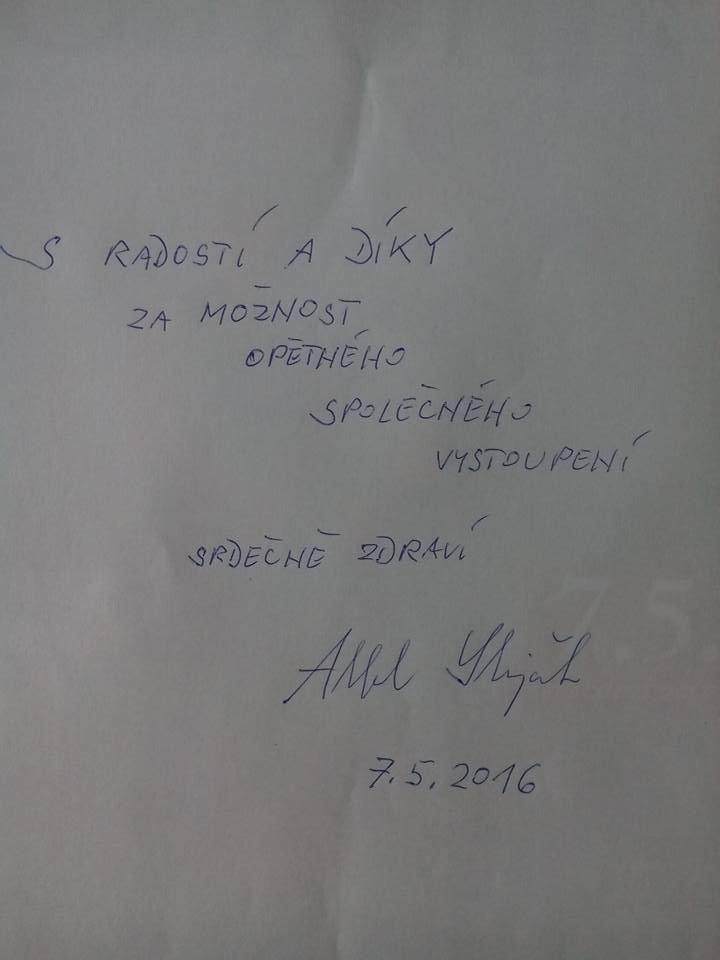 S RADOSTÍ A DÍKY
ZA MOŽNOST
OPĚTNÉHO
SPOLEČNÉHO
VYSTOUPENÍ
SRDEČNĚ ZDRAVÍ
7.5.
7.5.2016